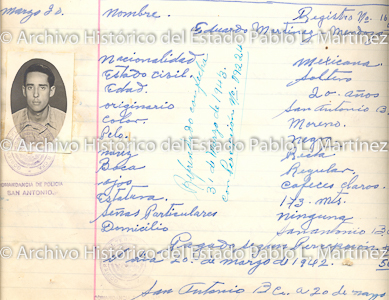 marzo 20.
Nombre. Registro No. 16
Eduardo Martinez Mendoza
Nacionalidad Mexicana
Estado civil. Soltero
Edad. 20 años
originario San Antonio B.
Color. Moreno.
Pelo. Negro
nariz Recta
Boca Regular
ojos cafeces claros.
Estatura 173 mts.
Señas Particulares ninguna
Domicilio San antonio B.C
Refrendo
31 de Marzo de 1943.
COMANDANCIA DE POLICIA
SAN ANTONIO.
Pagado segun Percepcion
20 de marzo de 1942.
San Antonio B.C. a 20 de mayo
© Archivo Histórico del Estado Pablo L. Martínez
© Archivo Histórico del Estado Pablo L. Martínez
© Archivo Histórico del Estado Pablo L. Martínez
© Archivo Histórico del Estado Pablo L. Martínez